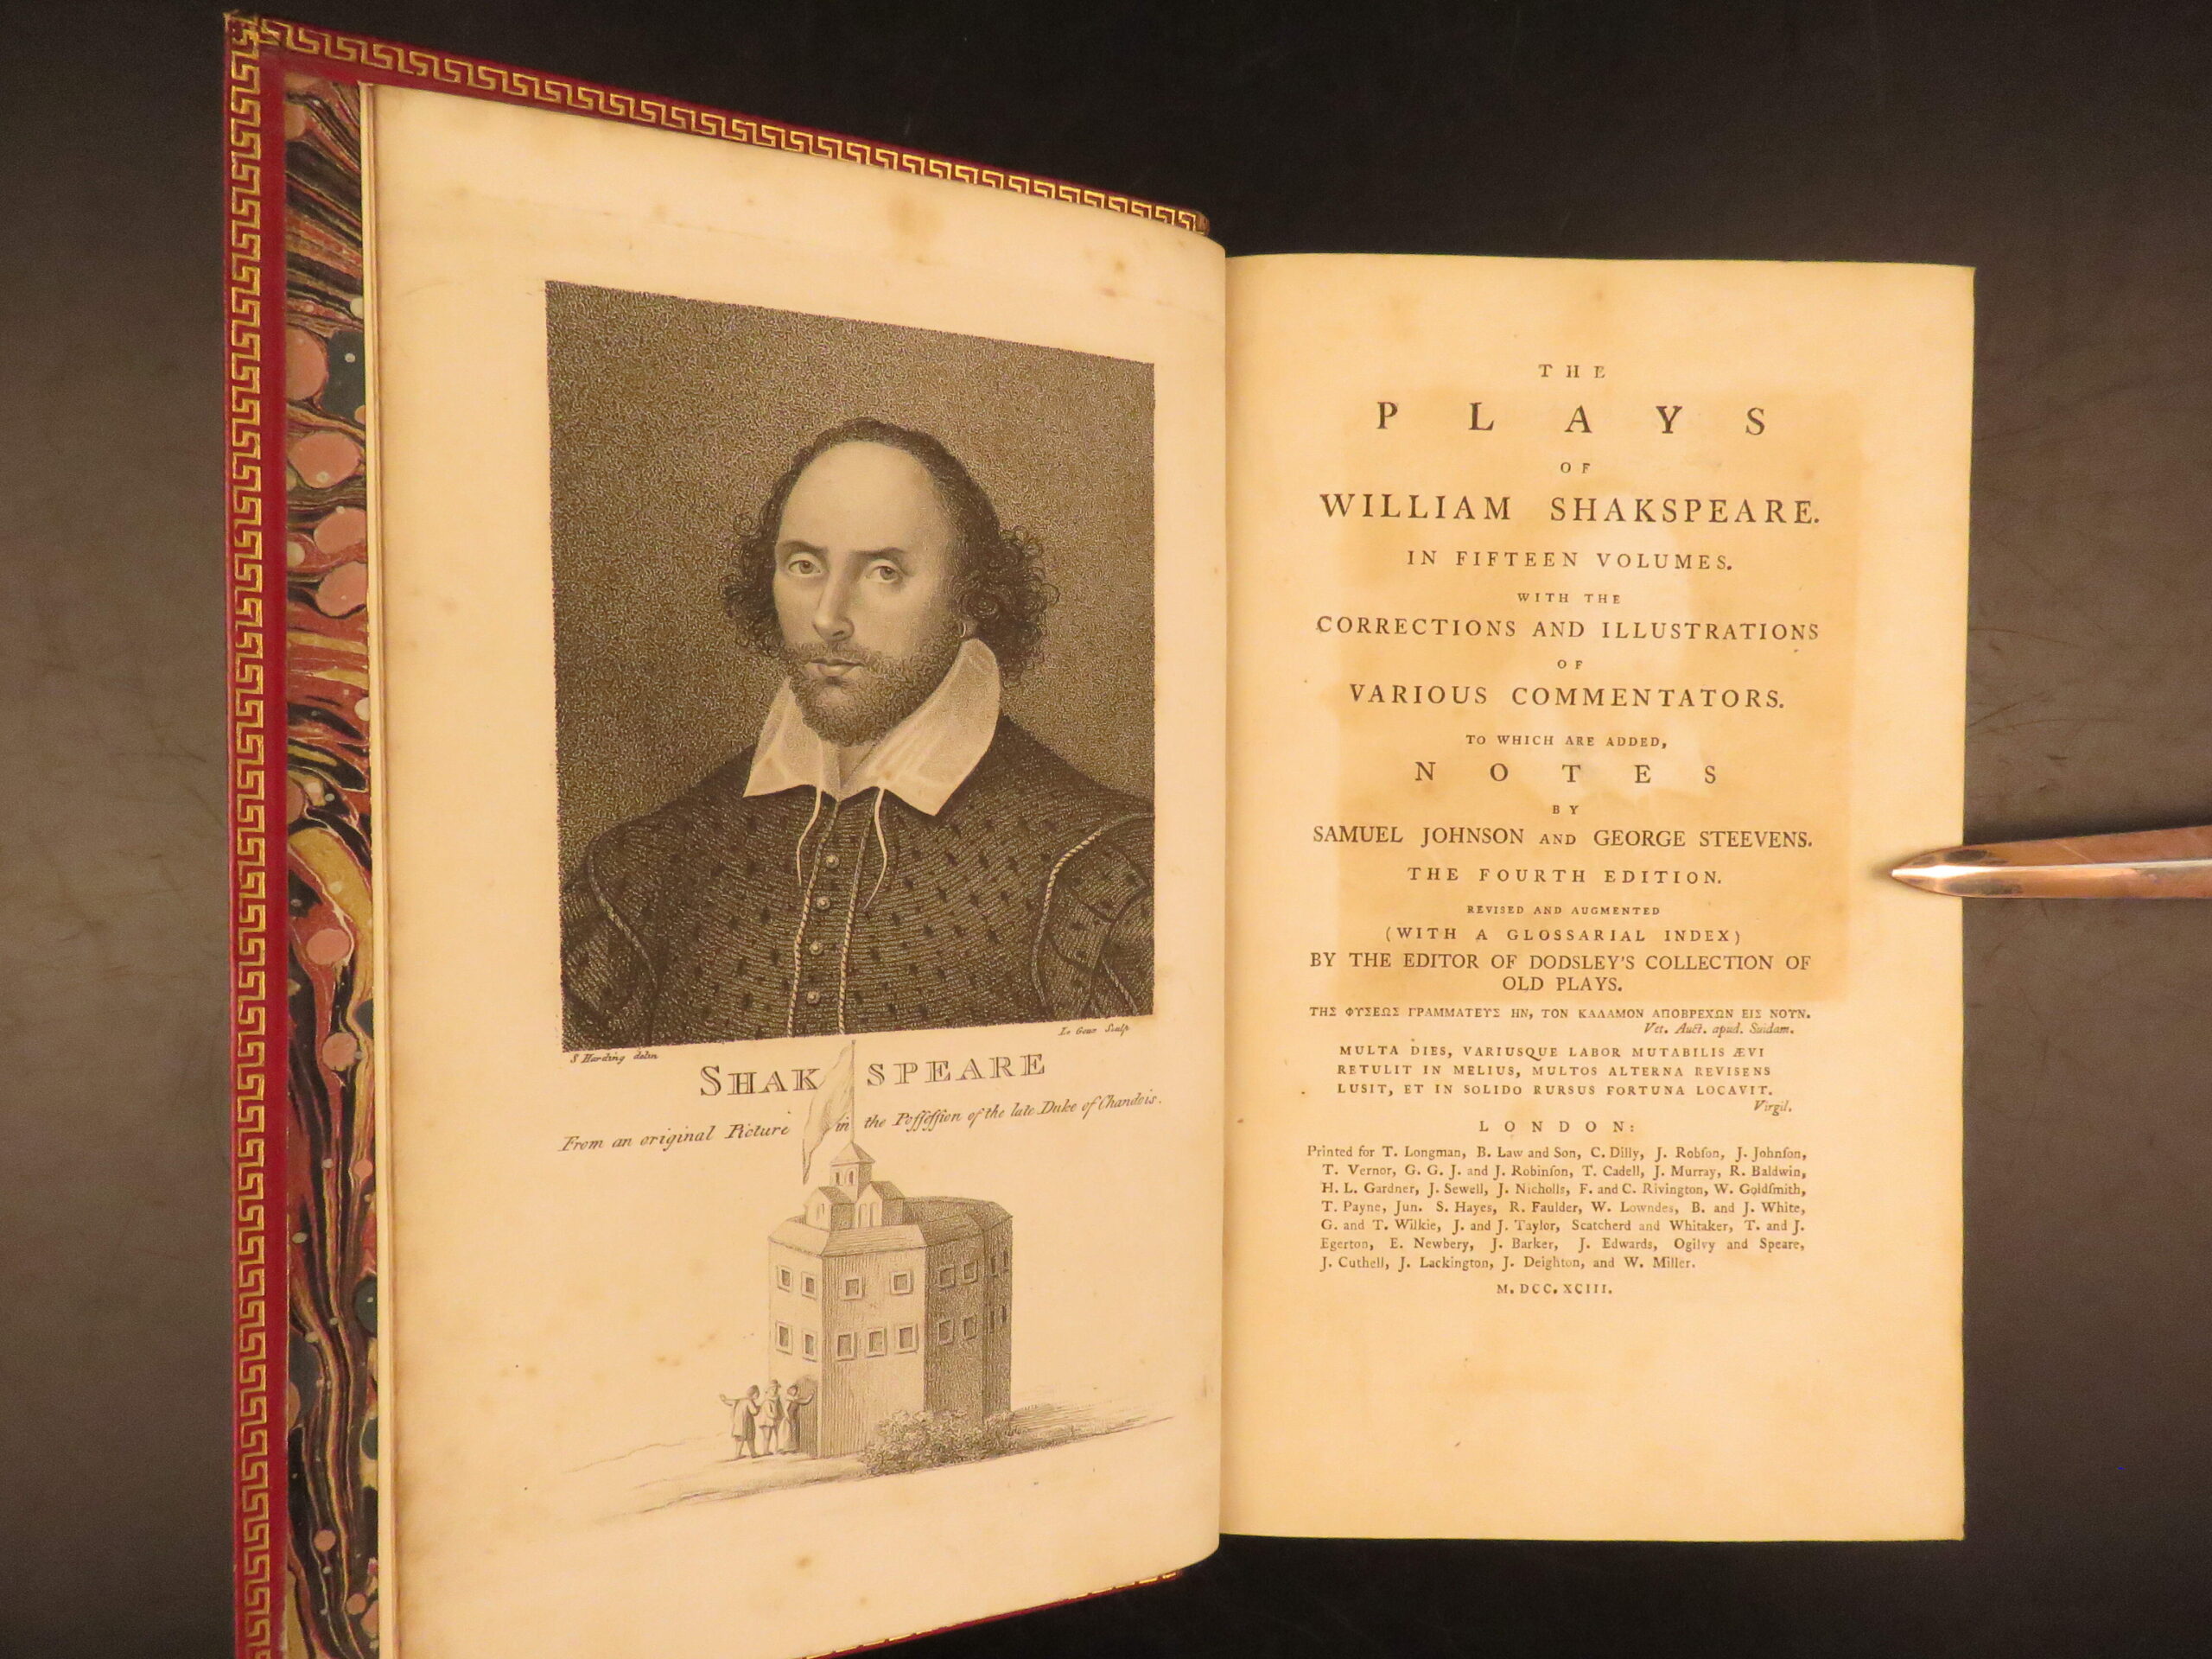 S Harding delin
Le Goux Sculp
SHAKSPEARE
From an original Picture in the Poſſeſſion of the late Duke of Chandois.
THE
PLAYS
OF
WILLIAM SHAKSPEARE.
IN FIFTEEN VOLUMES.
WITH THE
CORRECTIONS AND ILLUSTRATIONS
OF
VARIOUS COMMENTATORS.
TO WHICH ARE ADDED,
NOTES
BY
SAMUEL JOHNSON AND GEORGE STEEVENS.
THE FOURTH EDITION.
REVISED AND AUGMENTED
(WITH A GLOSSARIAL INDEX)
BY THE EDITOR OF DODSLEY'S COLLECTION OF
OLD PLAYS.
ΤΗΣ ΦΥΣΕΩΣ ΓΡΑΜΜΑΤΕΥΣ ΗΝ, ΤΟΝ ΚΑΛΑΜΟΝ ΑΠΟΒΡΕΧΩΝ ΕΙΣ ΝΟΥΝ.
Vet. Auct. apud. Suidam.
MULTA DIES, VARIUSQUE LABOR MUTABILIS ÆVI
RETULIT IN MELIUS, MULTOS ALTERNA REVISENS
LUSIT, ET IN SOLIDO RURSUS FORTUNA LOCAVIT.
Virgil.
LONDON:
Printed for T. Longman, B. Law and Son, C. Dilly, J. Robſon, J. Johnſon,
T. Vernor, G. G. J. and J. Robinſon, T. Cadell, J. Murray, R. Baldwin,
H. L. Gardner, J. Sewell, J. Nicholls, F. and C. Rivington, W. Goldſmith,
T. Payne, Jun. S. Hayes, R. Faulder, W. Lowndes, B. and J. White,
G. and T. Wilkie, J. and J. Taylor, Scatcherd and Whitaker, T. and J.
Egerton, E. Newbery, J. Barker, J. Edwards, Ogilvy and Speare,
J. Cuthell, J. Lackington, J. Deighton, and W. Miller.
M.DCC.XCIII.